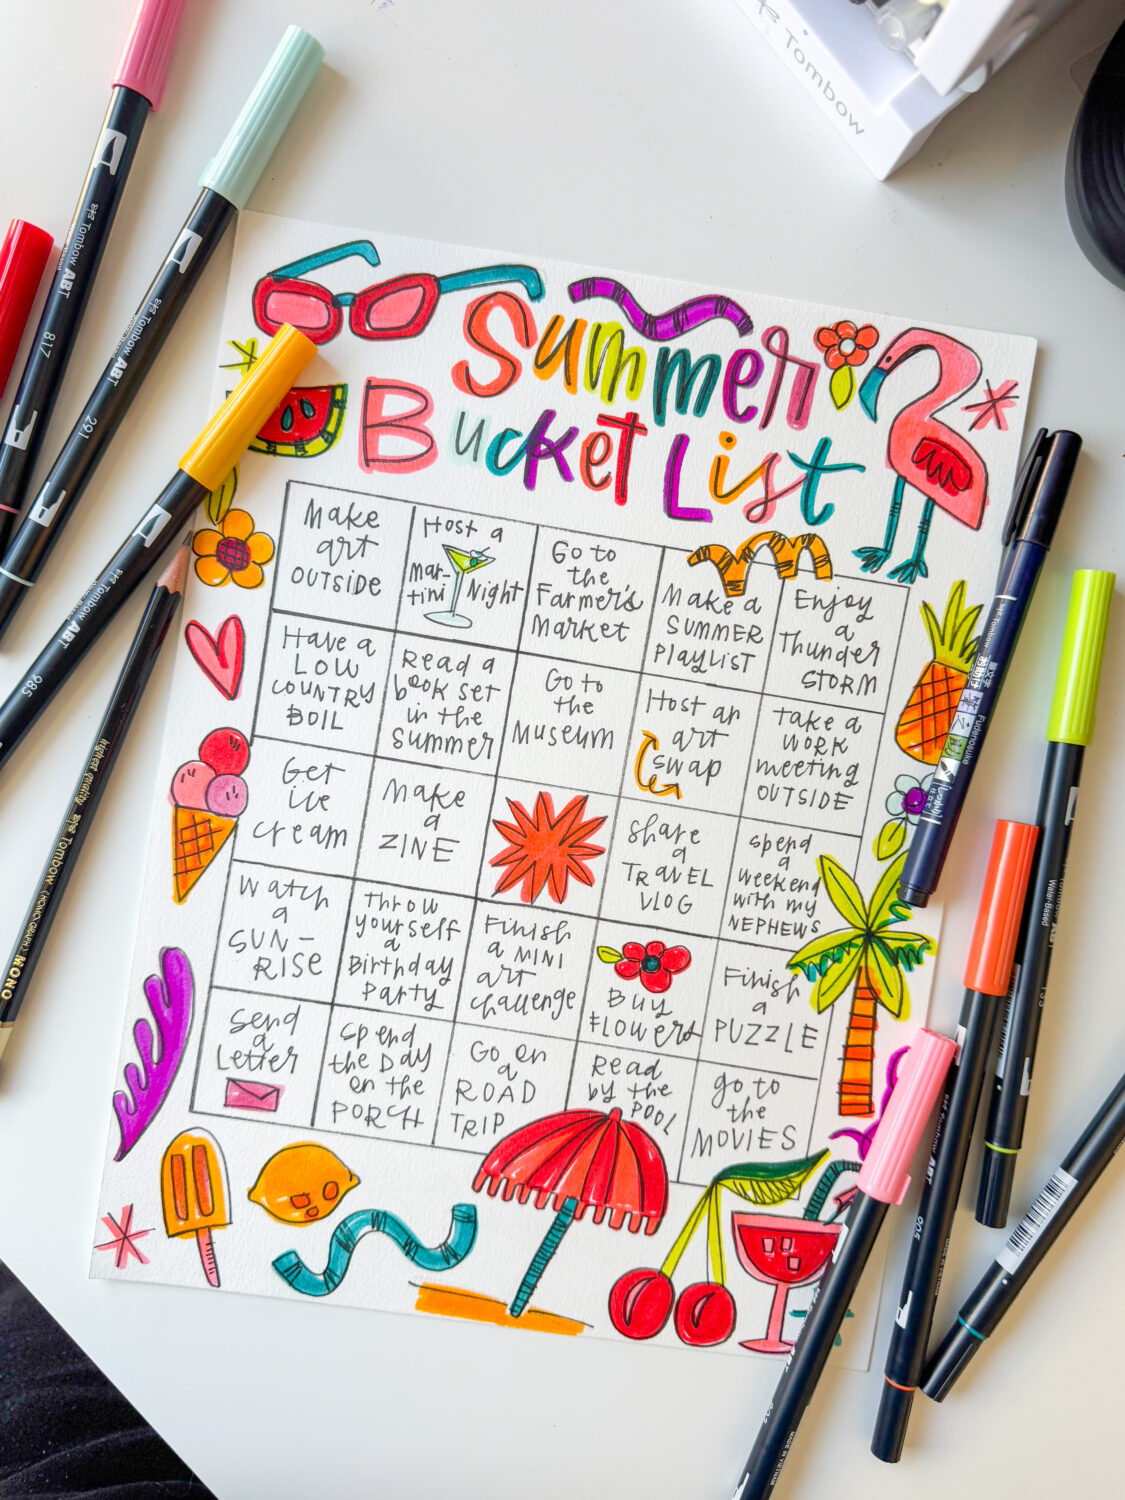 Tombow
Tombow ABT
817
Tombow ABT
291
Tombow ABT
985
highest quality Tombow (HOMO-GRAPH) MONO
SUMMER
BUCKET LIST
Make
art
OUTSIDE
Host a
Mar-
tini Night
Go to
the
Farmer's
Market
Make a
SUMMER
PLAYLIST
Enjoy
a
Thunder
STORM
Have a
LOW
COUNTRY
BOIL
Read a
book set
in the
summer
Go to
the
Museum
Host an
art
swap
Take a
WORK
meeting
OUTSIDE
Get
ice
cream
Make
a
ZINE
Share
a
TRAVEL
VLOG
Spend
a
weekend
with my
NEPHEWS
Watch
a
SUN-
RISE
Throw
yourself
a
Birthday
Party
Finish
a MINI
art
challenge
BUY
FLOWERS
Finish
a
PUZZLE
Send
a
Letter
Spend
the Day
on the
PORCH
Go on
a
ROAD
TRIP
Read
by the
POOL
go to
the
MOVIES
Tombow
Fudenosuke
Water-Based
133
Tombow ABT
905
MADE IN VIETNAM